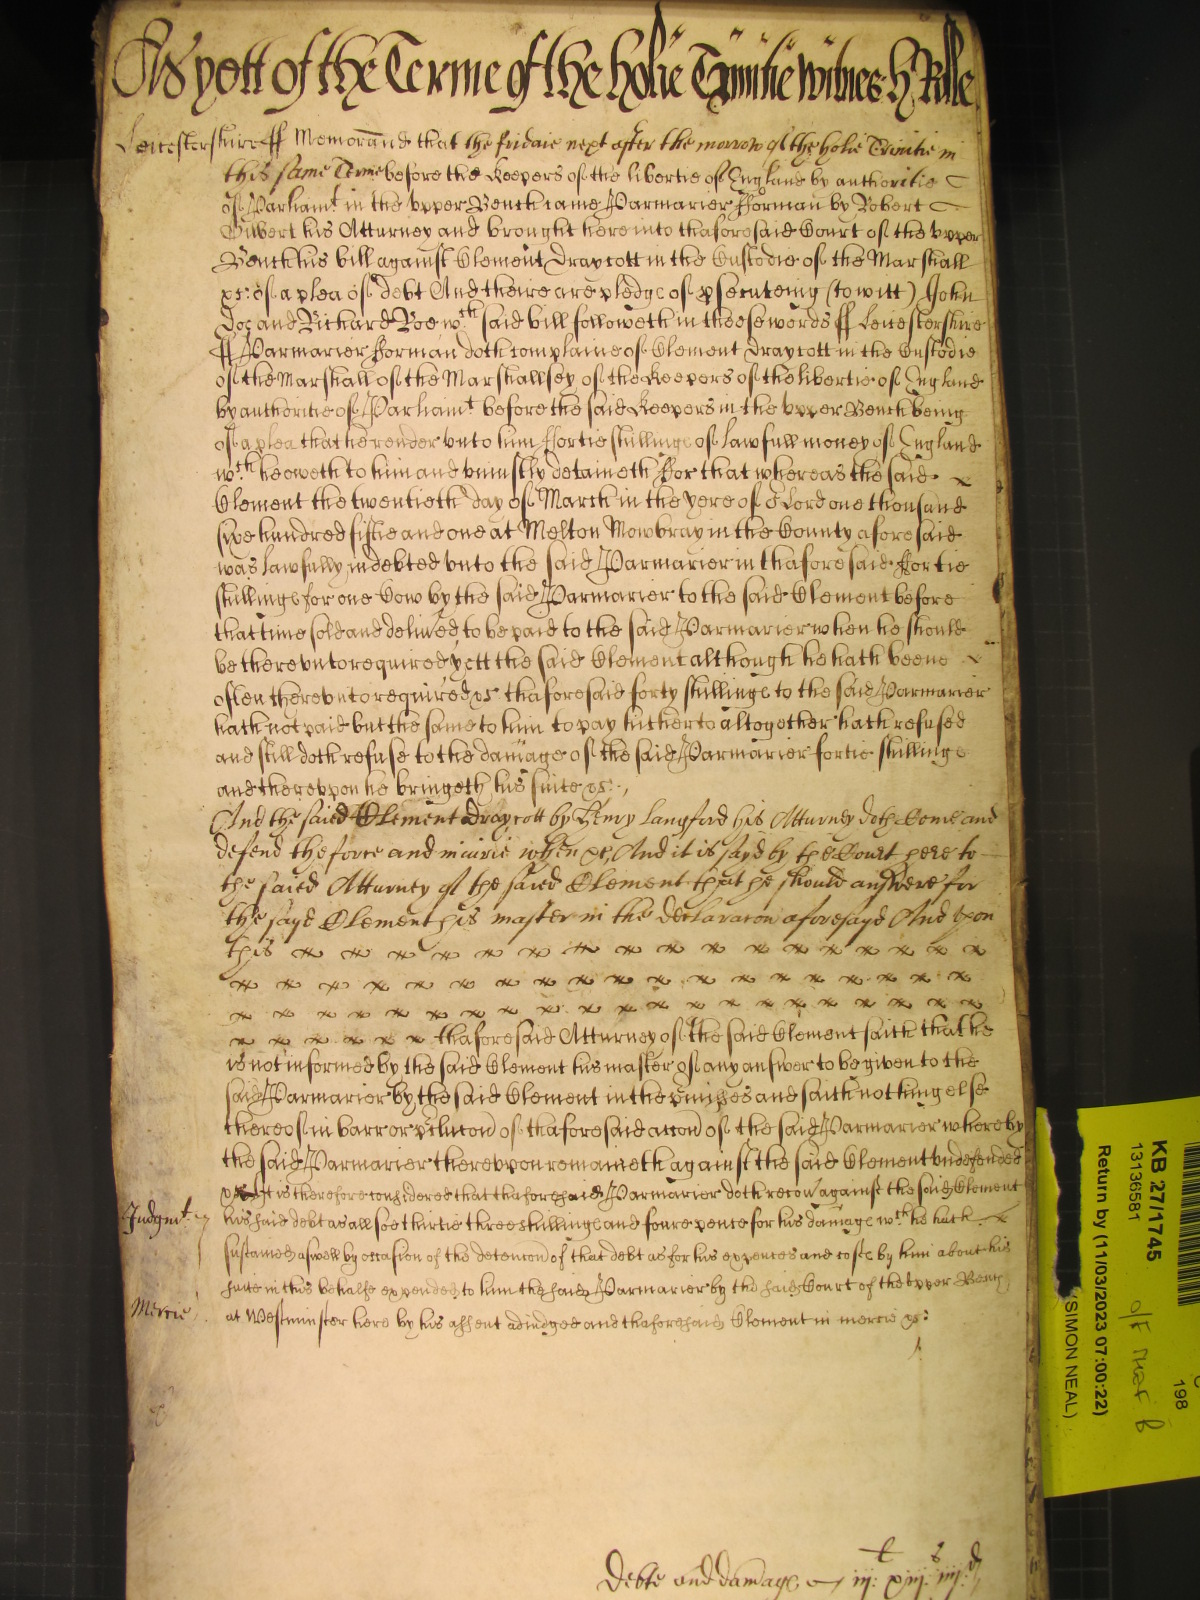 As yett of the Terme of the holie Trinitie witnes H Rolle
Leicestershire ff Memorand that the fridaie next after the morrow of the holie Trinitie in
this same Terme before the Keepers of the libertie of England by authoritie
of Parliamt in the vpper Bench came Parmarier fforman by Robert
Gilbert his Atturney and brought here into thaforesaid Court of the vpper
Bench his bill against Clement Draycott in the Custodie of the Marshall
&c: of a plea of debt And theire are pledge of psecuteing (to witt) John
Doe and Richard Roe wch said bill followeth in theese words ff Leicestershire
ff Parmarier fforman doth complaine of Clement Draycott in the Custodie
of the Marshall of the Marshallsey of the Keepers of the libertie of England
by authoritie of Parliamt before the said Keepers in the vpper Bench being
of a plea that he render vnto him ffortie shillings of lawfull money of England
wch he oweth to him and vniustly detaineth ffor that whereas the said
Clement the twentieth day of March in the yere of Lord one thousand
sixe hundred fiftie and one at Melton Mowbray in the County aforesaid
was lawfully indebted vnto the said Parmarier in thaforesaid ffortie
shillings for one Cow by the said Parmarier to the said Clement before
that time sold and delived to be paid to the said Parmarier when he should
be therevnto required yett the said Clement although he hath beene
often therevnto required &c thaforesaid forty shillings to the said Parmarier
hath not paid but the same to him to pay hitherto altogether hath refused
and still doth refuse to the damage of the said Parmarier fortie shillings
and therevpon he bringeth his suite &c:
And the saied Clement Draycott by Henry Langford his Atturney doth Come and
defend the force and iniurie when &c, And it is sayd by the Court here to
the saied Atturney of the saied Clement that he should answere for
the sayd Clement his master in the declaracon aforesayd And vpon
this
thaforesaid Atturney of the said Clement saith that he
is not informed by the said Clement his master of any answer to be given to the
said Parmarier by the said Clement in the pmisses and saith nothing else
thereof in barr or pclucon of thaforesaid accon of the said Parmarier whereby
the said Parmarier therevpon remaineth against the said Clement vndefended
&c It is therefore considered that thaforesaid Parmarier doth recov against the said Clement
Judgmt his said debt as allsoe thirtie three shillings and foure pence for his damage wch he hath
sustained aswell by occasion of the detencon of that debt as for his expences and costs by him about his
suite in this behalfe expended to him the said Parmarier by the said Court of the vpper Bench
Mercie at Westminster here by his assent adiudged and thaforesaid Clement in mercie &c:
Debte and damage iij: l xiij: s iiij: d
KB 27/1745
13136581
Return by (11/03/2023 07:00:22)
(SIMON NEAL)
198